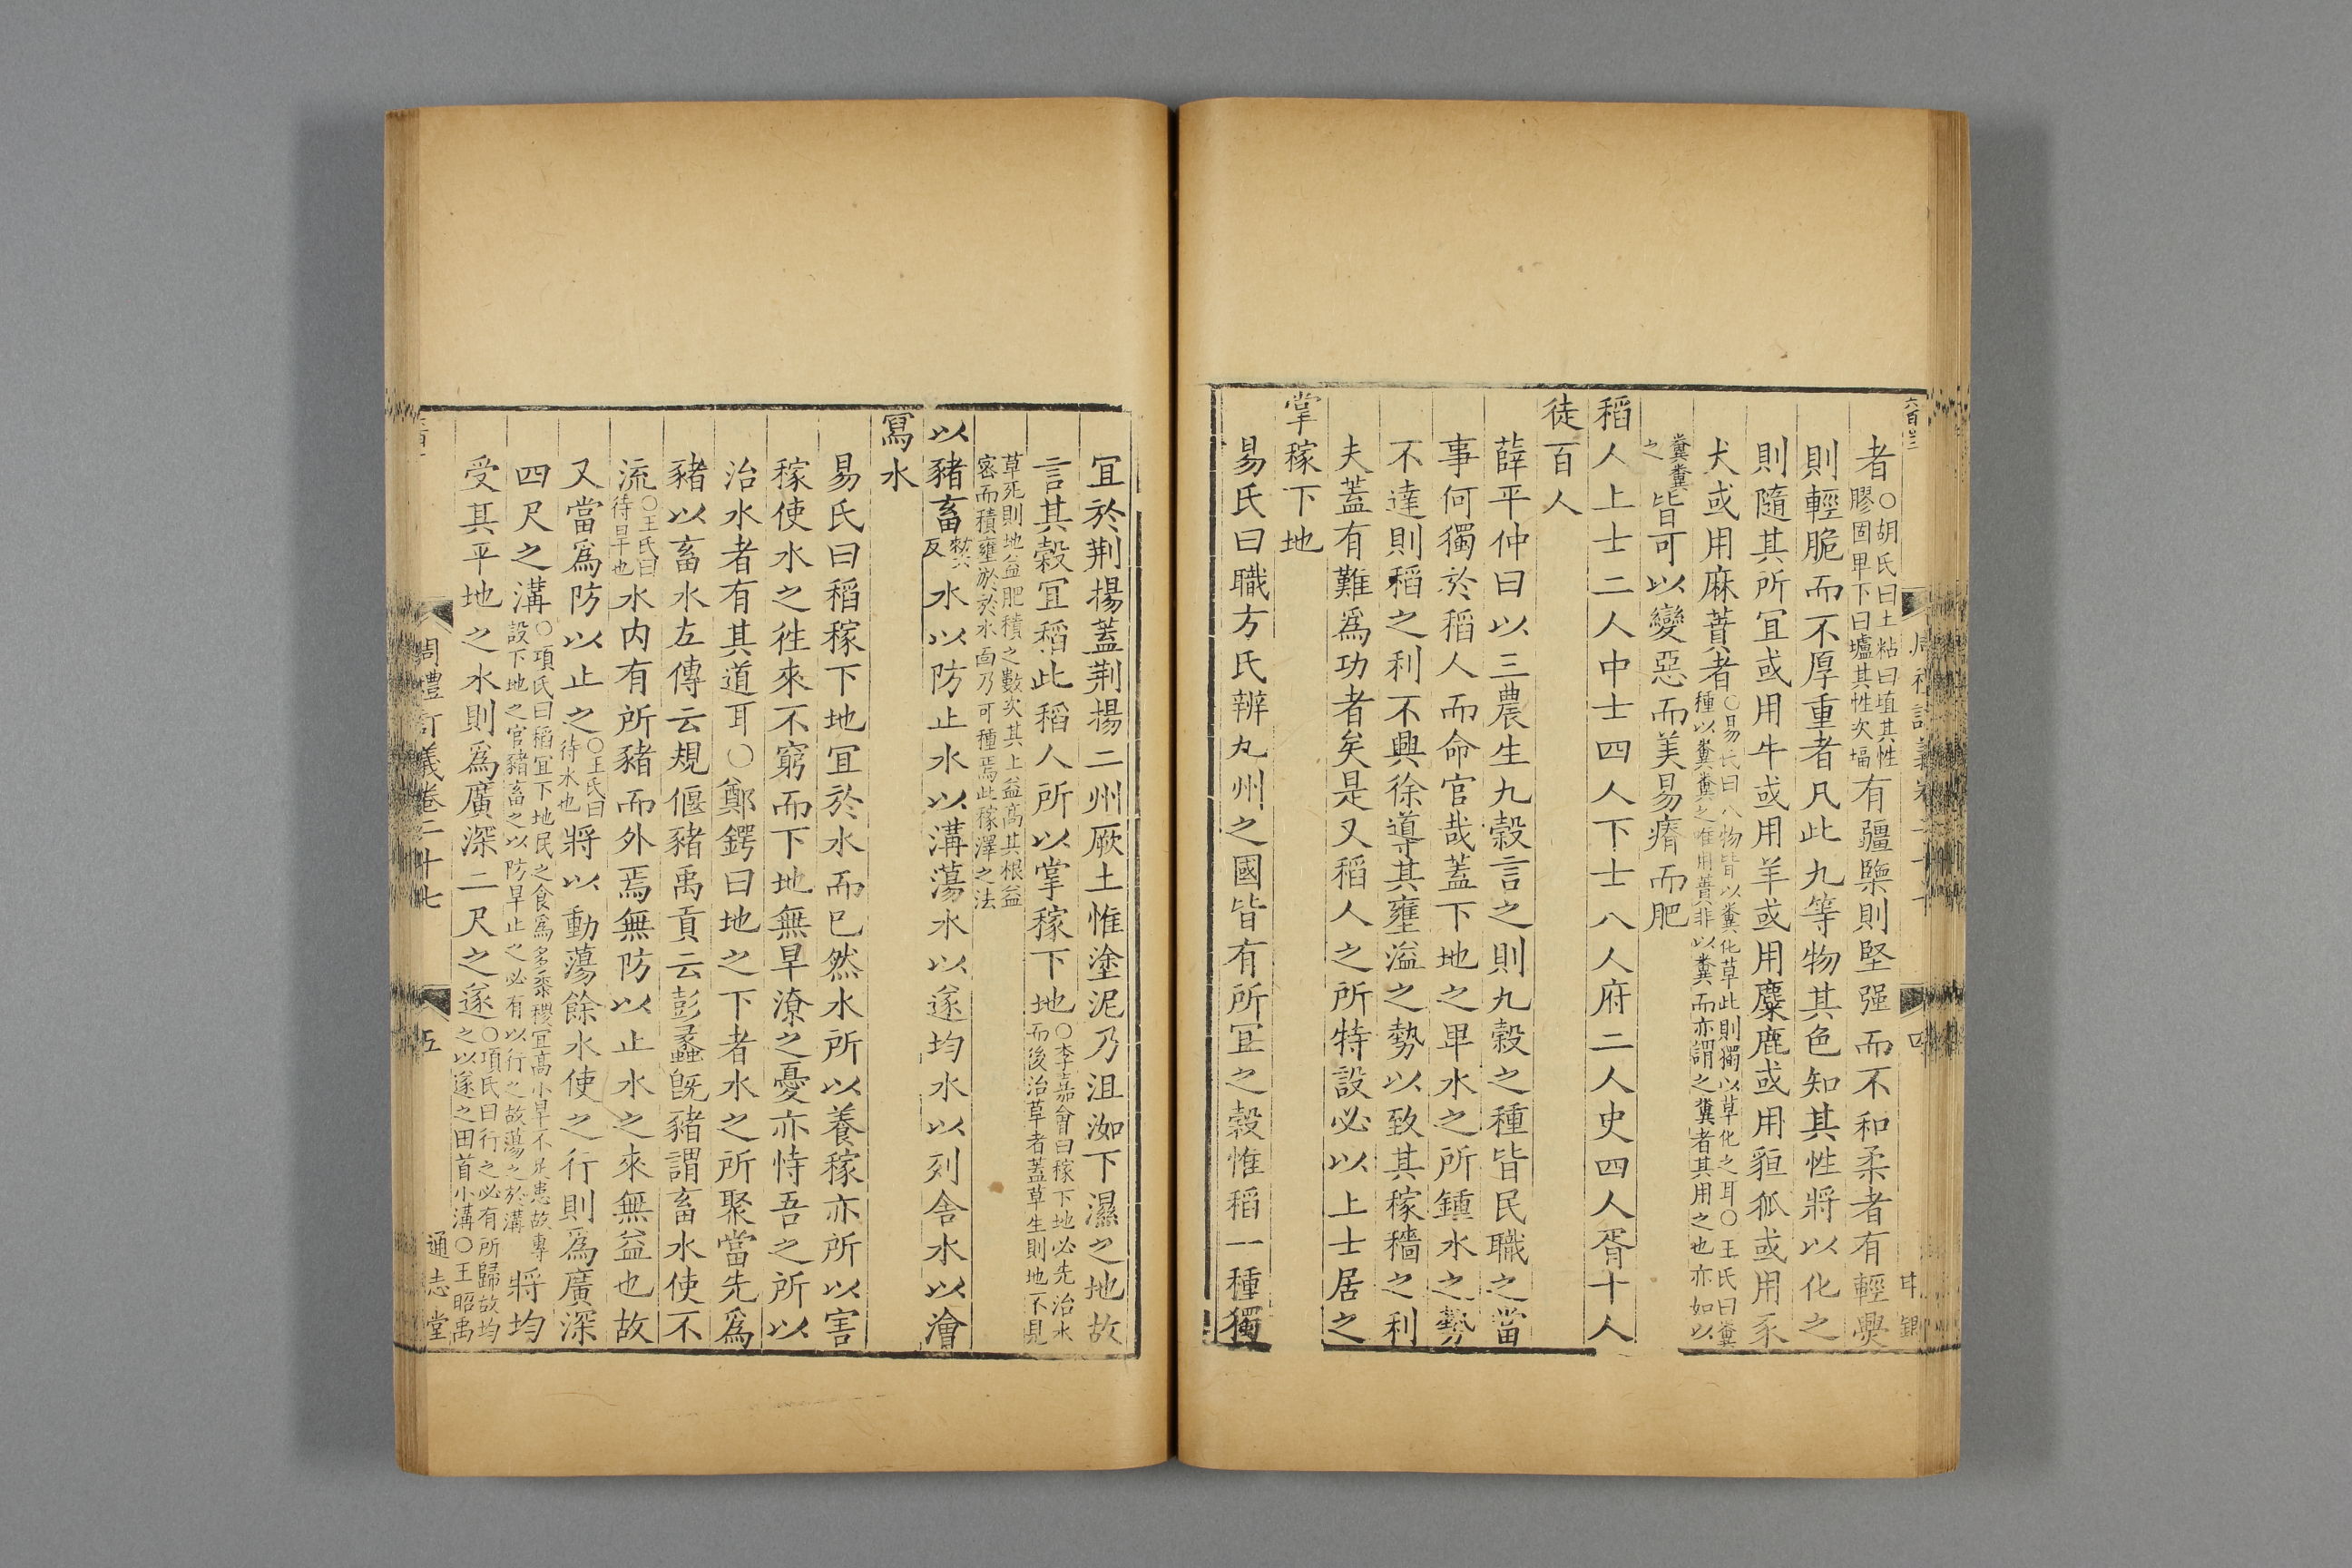 者○胡氏曰土粘曰埴其性膠固甲下曰壚其性次堛有疆㯺則堅强而不和柔者有輕㷳
則輕脆而不厚重者凡此九等物其色知其性將以化之
則隨其所宜或用牛或用羊或用麋鹿或用貆狐或用豕
犬或用麻蕡者○易氏曰八物皆以糞化草此則獨以草化之耳○王氏曰糞種以糞糞之唯用蕡非以糞而亦謂之糞者其用之也亦如以
糞糞之皆可以變惡而美易瘠而肥
稻人上士二人中士四人下士八人府二人史四人胥十人
徒百人
薛平仲曰以三農生九穀言之則九穀之種皆民職之當
事何獨於稻人而命官哉蓋下地之卑水之所鍾水之勢
不達則稻之利不興徐導其壅溢之勢以致其稼穡之利
夫蓋有難爲功者矣是又稻人之所特設必以上士居之
掌稼下地
易氏曰職方氏辨九州之國皆有所宜之穀惟稻一種獨
宜於荆揚蓋荆揚二州厥土惟塗泥乃沮洳下濕之地故
言其穀宜稻此稻人所以掌稼下地○李嘉會曰稼下地必先治水而後治草者蓋草生則地不見
草死則地益肥積之數次其上益高其根益密而積壅於水面乃可種焉此稼澤之法
以豬畜敕六反水以防止水以溝蕩水以遂均水以列舍水以澮
寫水
易氏曰稻稼下地宜於水而已然水所以養稼亦所以害
稼使水之徃來不窮而下地無旱潦之憂亦恃吾之所以
治水者有其道耳○鄭鍔曰地之下者水之所聚當先爲
豬以畜水左傳云規偃豬禹貢云彭蠡旣豬謂畜水使不
流○王氏曰待旱也水内有所豬而外焉無防以止水之來無益也故
又當爲防以止之○王氏曰待水也將以動蕩餘水使之行則爲廣深
四尺之溝○項氏曰稻宜下地民之食爲多黍稷宜高小旱不足患故專設下地之官豬畜之以防旱止之必有以行之故蕩之於溝將均
受其平地之水則爲廣深二尺之遂○項氏曰行之必有所歸故均之以遂之田首小溝○王昭禹
周禮訂義卷二十七
五
通志堂